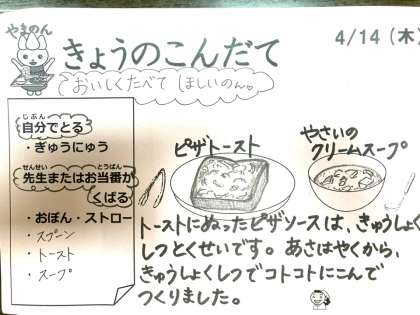 やまのん
きょうのこんだて
4/14(木)
おいしくたべて ほしいのん♡
じぶん
自分でとる
・ぎゅうにゅう
せんせい とうばん
先生またはお当番が
くばる
・おぼん・ストロー
・スプーン
・トースト
・スープ
ピザトースト
やさいの
クリームスープ
トーストにぬったピザソースは、きゅうしょく
しつとくせいです。あさはやくから、
きゅうしょくしつでコトコトにこんで
つくりました。